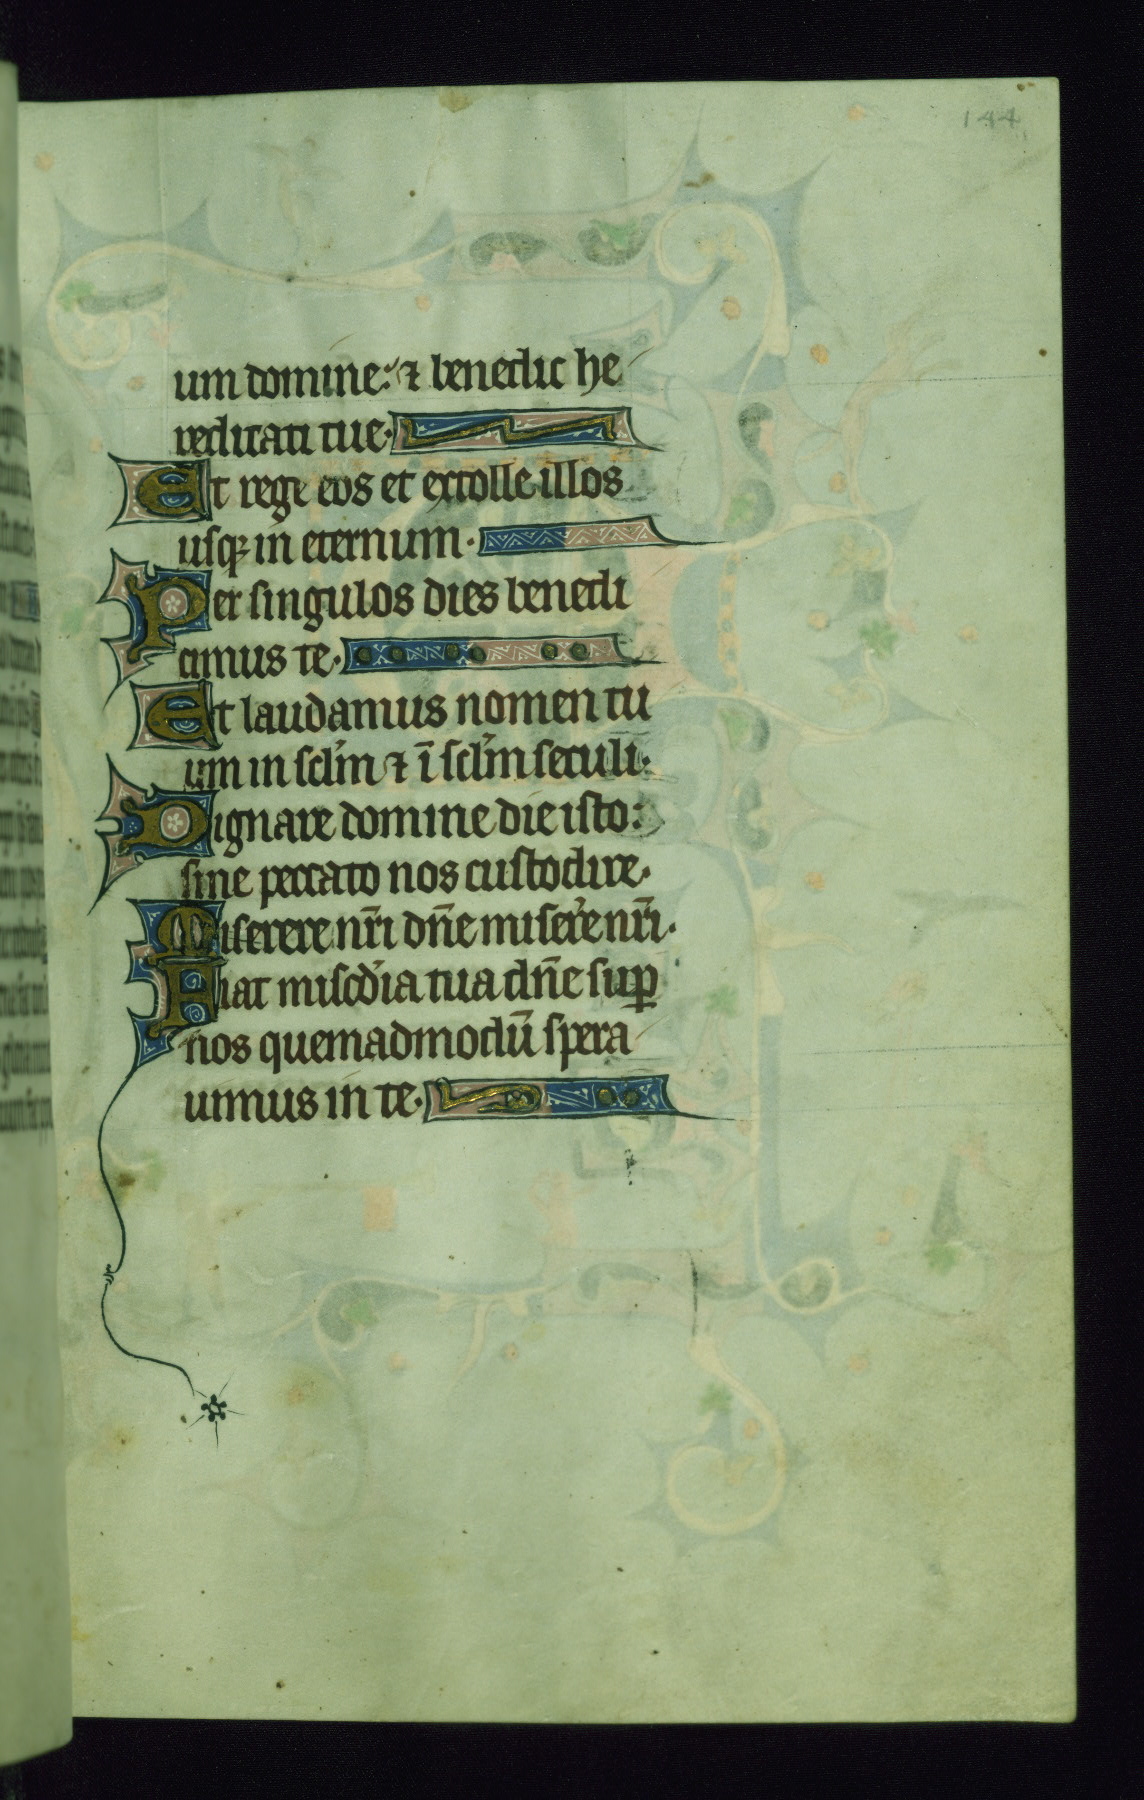 144
um domine: ⁊ benedic he
reditati tue.
Et rege eos et extolle illos
usqꝫ in eternum.
Per singulos dies benedi
cimus te.
Et laudamus nomen tu
um in sclm̄ ⁊ ī sclm̄ seculi.
Dignare domine die isto:
sine peccato nos custodire.
Miserere nr̄i dn̄e misere nr̄i.
Fiat misc̄dia tua dn̄e suꝑ
nos quemadmodū spera
uimus in te.